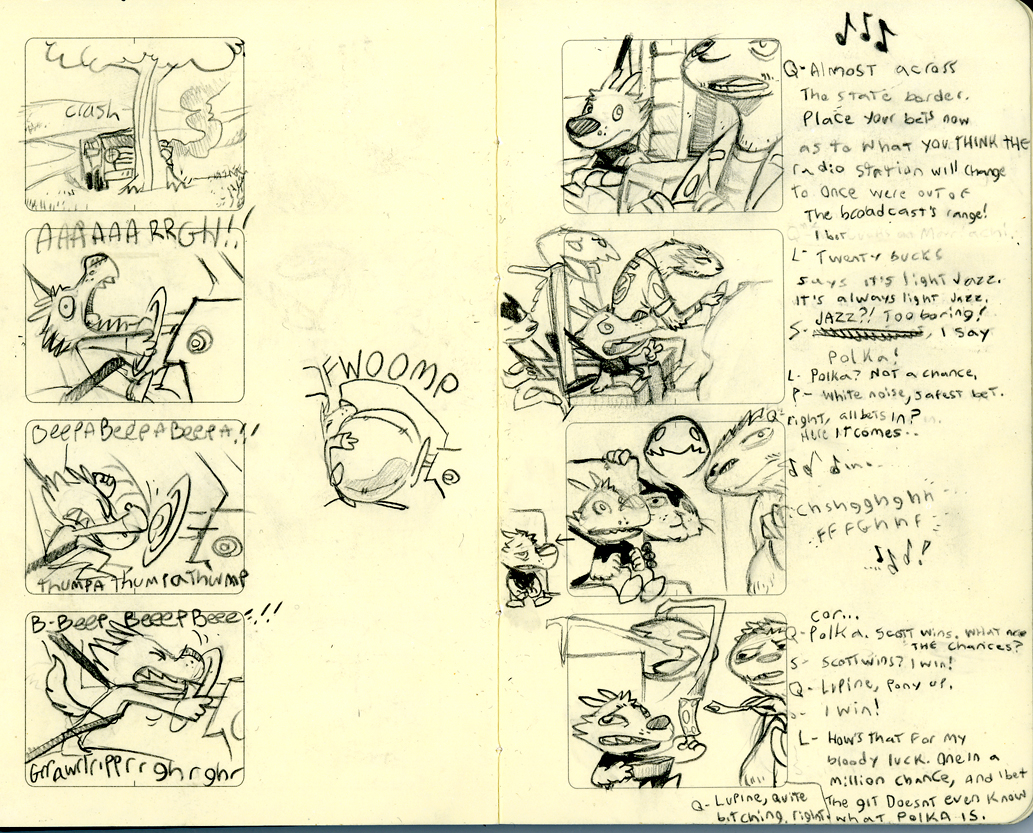 crash
AAAAAARRGH!!
BeepABeepABeepA!!
thumpA thumpathump
B-Beep Beeep Beee-!!
Grrawrlripprrghrghr
FWOOMP
Q- Almost across
The state border.
Place your bets now
as to what you THINK THE
radio station will change
to once were out of
The broadcast's range!
I bet
L- Twenty bucks
says it's light Jazz.
It's always light Jazz.
JAZZ?! Too boring!
S- , I say
Polka!
L- Polka? Not a chance,
P- White noise, safest bet.
Q- right, all bets in?
Here it comes..
Chshgghghh
FFFGhhf
cor...
Q- Polka. Scott wins. What are
THE chances?
S- Scott wins? I win!
Q- Lupine, Pony up.
S- I win!
L- How's that for my
bloody luck. One in a
million chance, and I bet
The git Doesnt even Know
what POLKA is.
Q- Lupine, quite
bitching, right